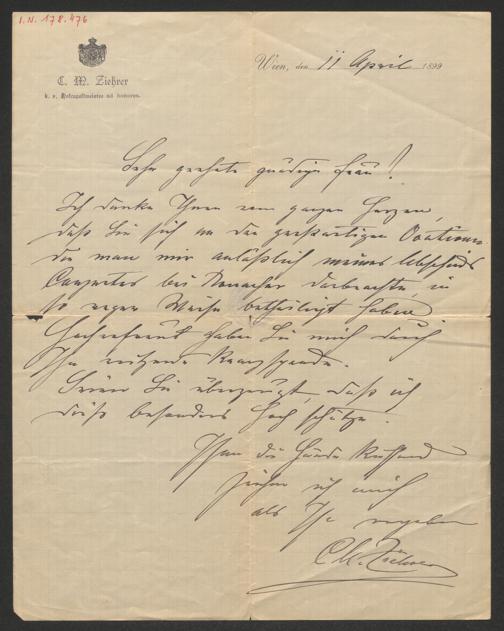 I.N. 178.476
C. M. Ziehrer
Wien, den 11 April 1899
Sehr geehrte gnädige Frau!
Ich danke Ihnen vom ganzen Herzen,
daß Sie sich an den großartigen Ovationen
die man mir anläßlich meines Abschieds
Concertes bei Ronacher darbrachte, in
so reger Weise betheiligt haben
Hocherfreut haben Sie mich durch
Ihre reizende Kranzspende.
Seien Sie überzeugt, daß ich
dieß besonders hoch schätze.
Ihnen die Hände küssend
zeichne ich mich
als Ihr ergebener
C.M. Ziehrer